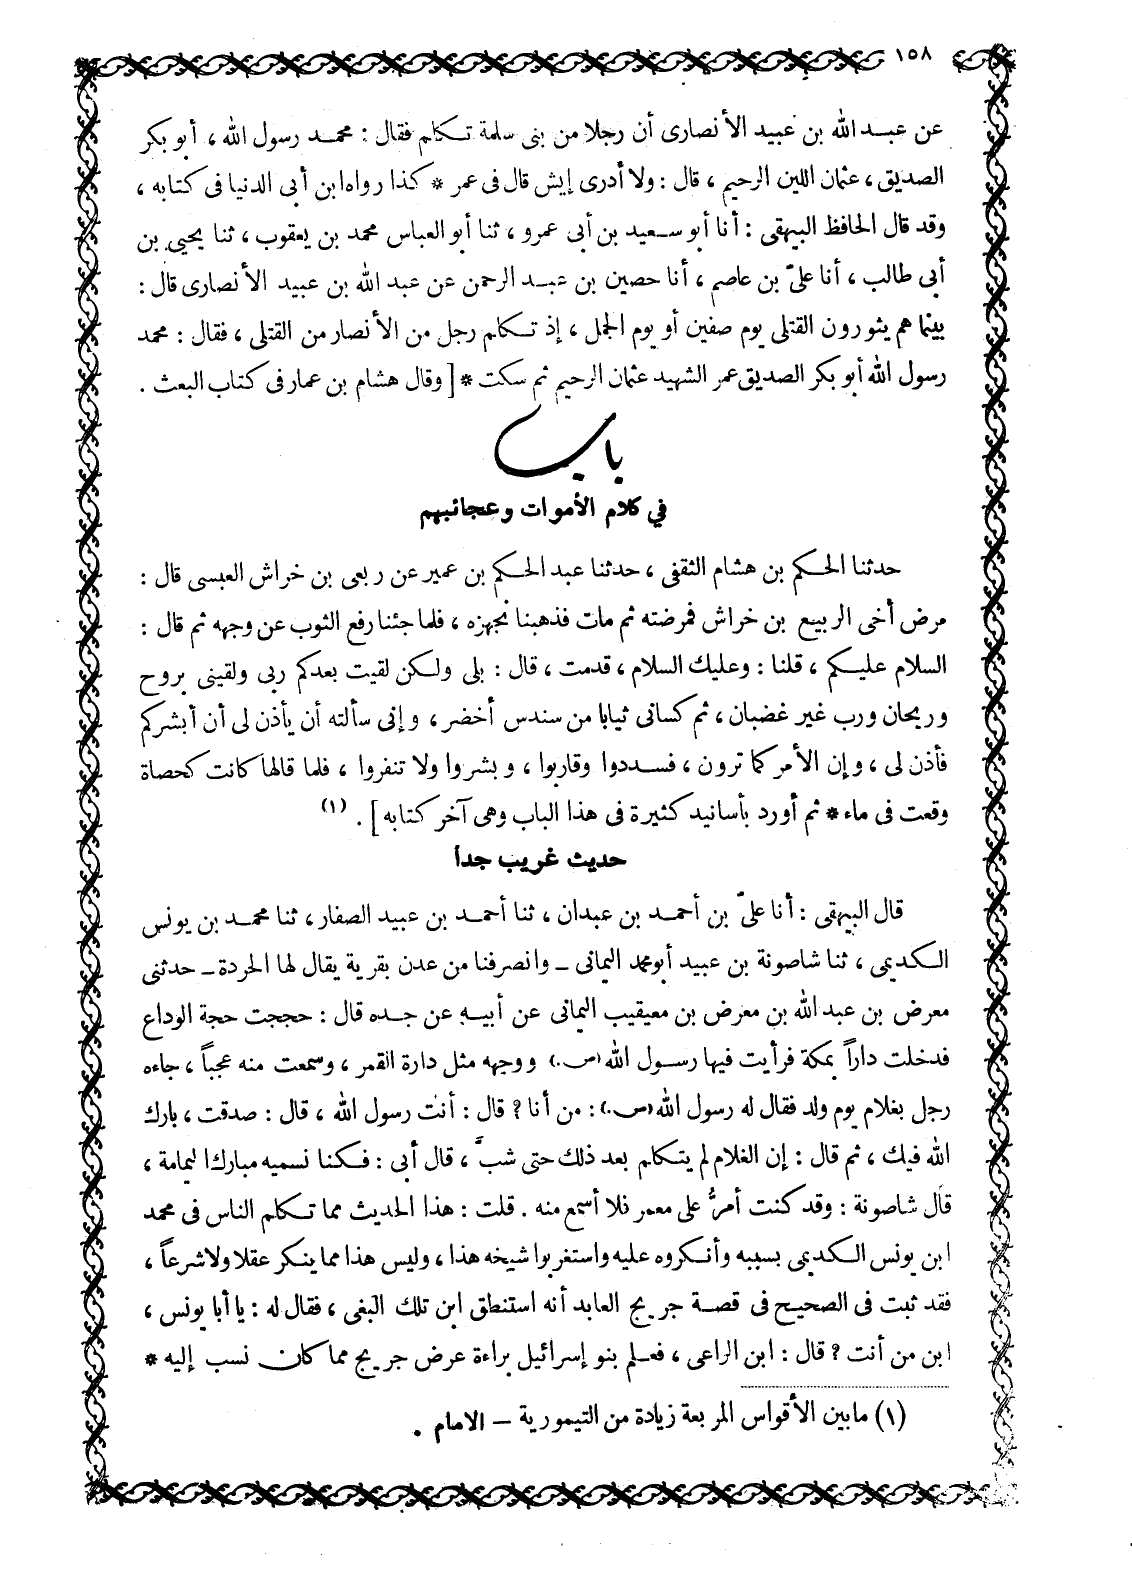 ١٥٨
عن عبد الله بن عبيد الأنصارى أن رجلا من بنى سلمة تكلم فقال : محمد رسول الله ، أبو بكر
الصديق ، عثمان اللين الرحيم ، قال : ولا أدرى إيش قال فى عمر * كذا رواه ابن أبى الدنيا فى كتابه ،
وقد قال الحافظ البيهقى : أنا أبو سعيد بن أبى عمرو ، ثنا أبو العباس محمد بن يعقوب ، ثنا يحيى بن
أبى طالب ، أنا علىّ بن عاصم ، أنا حصين بن عبد الرحمن عن عبد الله بن عبيد الأنصارى قال :
بينما هم يثورون القتلى يوم صفين أو يوم الجمل ، إذ تكلم رجل من الأنصار من القتلى ، فقال : محمد
رسول الله أبو بكر الصديق عمر الشهيد عثمان الرحيم ثم سكت * [ وقال هشام بن عمار فى كتاب البعث .
باب
في كلام الأموات وعجائبهم
حدثنا الحكم بن هشام الثقفى ، حدثنا عبد الحكم بن عمير عن ربعى بن خراش العبسى قال :
مرض أخى الربيع بن خراش فمرضته ثم مات فذهبنا نجهزه ، فلما جئنا رفع الثوب عن وجهه ثم قال :
السلام عليكم ، قلنا : وعليك السلام ، قدمت ، قال : بلى ولكن لقيت بعدكم ربى ولقينى بروح
وريحان ورب غير غضبان ، ثم كسانى ثيابا من سندس أخضر ، وإنى سألته أن يأذن لى أن أبشركم
فأذن لى ، وإن الأمر كما ترون ، فسددوا وقاربوا ، وبشروا ولا تنفروا ، فلما قالها كانت كحصاة
وقعت فى ماء * ثم أورد بأسانيد كثيرة فى هذا الباب وهى آخر كتابه ] . (١)
حديث غريب جدا
قال البيهقى : أنا علىّ بن أحمد بن عبدان ، ثنا أحمد بن عبيد الصفار ، ثنا محمد بن يونس
الكديمى ، ثنا شاصونة بن عبيد أبو محمد اليمانى ــ وانصرفنا من عدن بقرية يقال لها الحردة ــ حدثنى
معرض بن عبد الله بن معرض بن معيقيب اليمانى عن أبيه عن جده قال : حججت حجة الوداع
فدخلت داراً بمكة فرأيت فيها رسول الله (ص.) ووجهه مثل دارة القمر ، وسمعت منه عجباً ، جاءه
رجل بغلام يوم ولد فقال له رسول الله (ص.) : من أنا ؟ قال : أنت رسول الله ، قال : صدقت ، بارك
الله فيك ، ثم قال : إن الغلام لم يتكلم بعد ذلك حتى شبَّ ، قال أبى : فكنا نسميه مبارك اليمامة ،
قال شاصونة : وقد كنت أمرُّ على معمر فلا أسمع منه . قلت : هذا الحديث مما تكلم الناس فى محمد
ابن يونس الكديمى بسببه وأنكروه عليه واستغربوا شيخه هذا ، وليس هذا مما ينكر عقلا ولا شرعاً ،
فقد ثبت فى الصحيح فى قصة جريج العابد أنه استنطق ابن تلك البغى ، فقال له : يا أبا يونس ،
ابن من أنت ؟ قال : ابن الراعى ، فعلم بنو إسرائيل براءة عرض جريج مما كان نسب إليه *
(١) ما بين الأقواس المربعة زيادة من التيمورية ــ الامام .